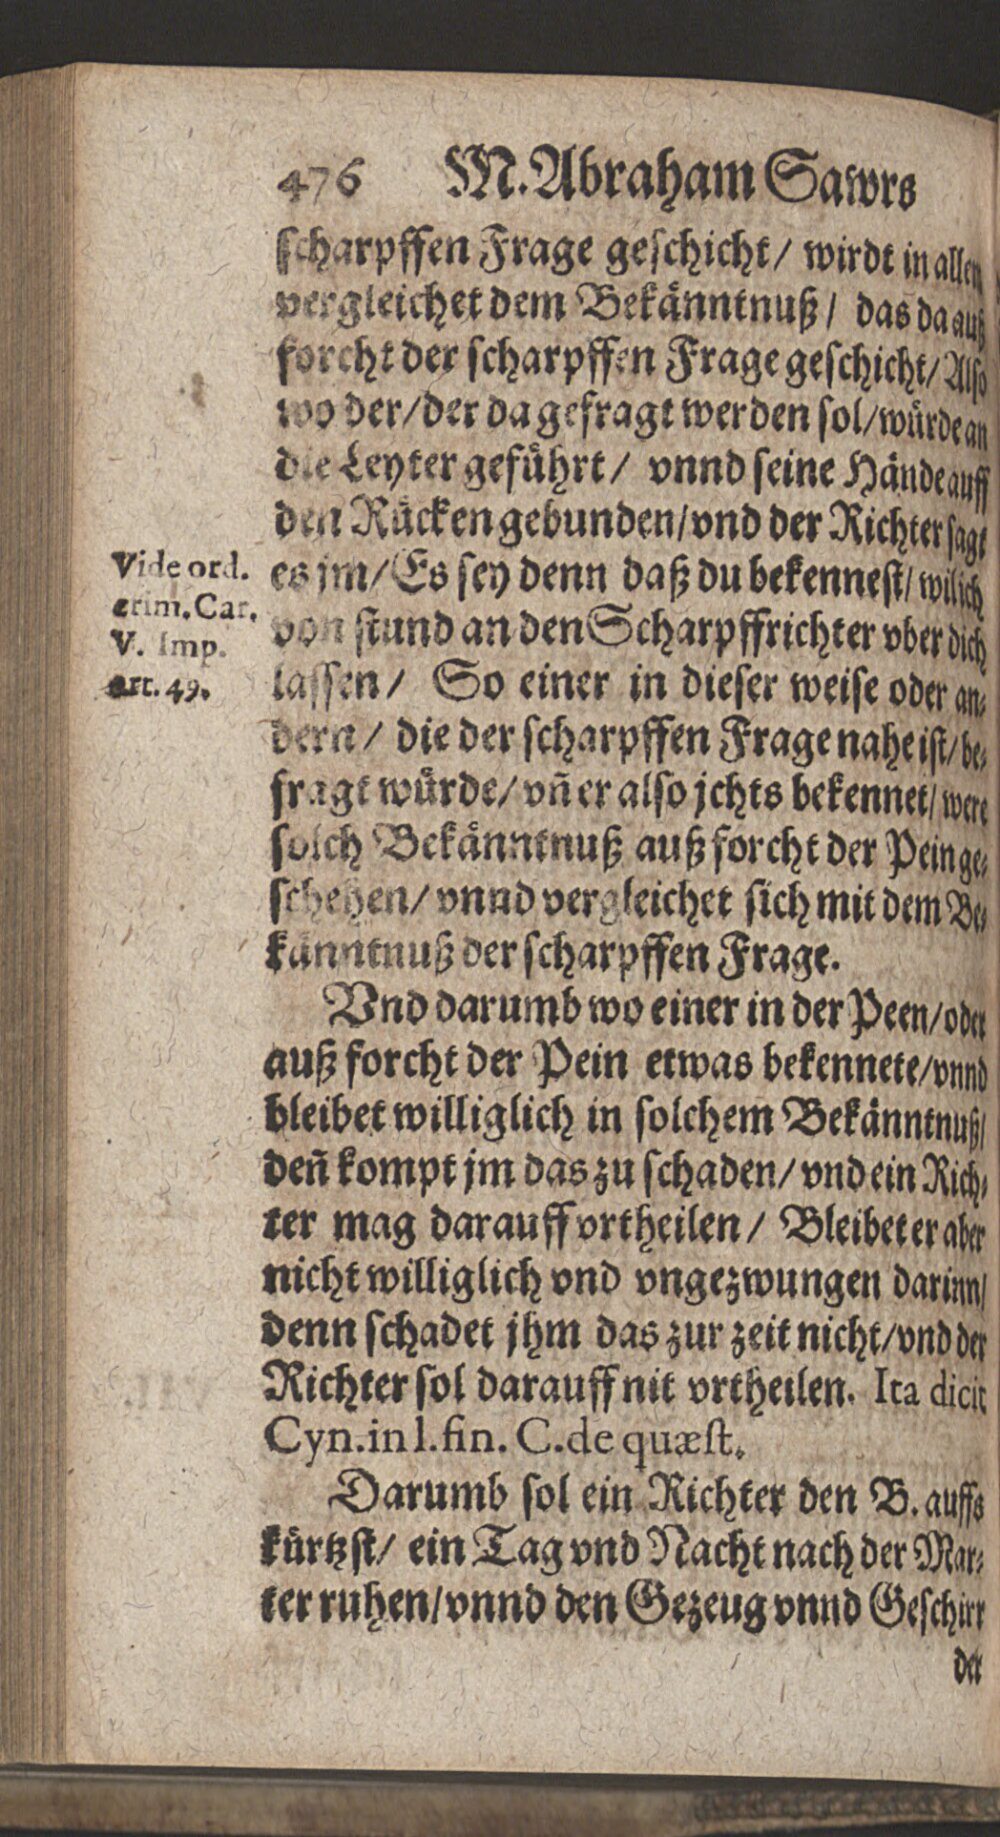 476 M. Abraham Sawrs
scharpffen Frage geschicht/ wirdt in allen
vergleichet dem Bekänntnuß/ das da auß
forcht der scharpffen Frage geschicht/ Also
wo der/ der da gefragt werden sol/ würde an
die Leyter geführt/ vnnd seine Hände auff
den Rücken gebunden/ vnd der Richter sagt
es jm/ Es sey denn daß du bekennest/ wil ich
von stund an den Scharpffrichter vber dich
lassen/ So einer in dieser weise oder an-
dern/ die der scharpffen Frage nahe ist/ be-
fragt würde/ vñ er also jchts bekennet/ were
solch Bekänntnuß auß forcht der Pein ge-
schehen/ vnnd vergleichet sich mit dem Be-
känntnuß der scharpffen Frage.
Vide ord.
crim. Car.
V. Imp.
art. 49.
Vnd darumb wo einer in der Peen/ oder
auß forcht der Pein etwas bekennete/ vnnd
bleibet williglich in solchem Bekänntnuß/
deñ kompt jm das zu schaden/ vnd ein Rich-
ter mag darauff vrtheilen/ Bleibet er aber
nicht williglich vnd vngezwungen darinn/
denn schadet jhm das zur zeit nicht/ vnd der
Richter sol darauff nit vrtheilen. Ita dicit
Cyn. in l. fin. C. de quæst.
Darumb sol ein Richter den B. auffs
kürtzst/ ein Tag vnd Nacht nach der Mar-
ter ruhen/ vnnd den Gezeug vnnd Geschirr
der